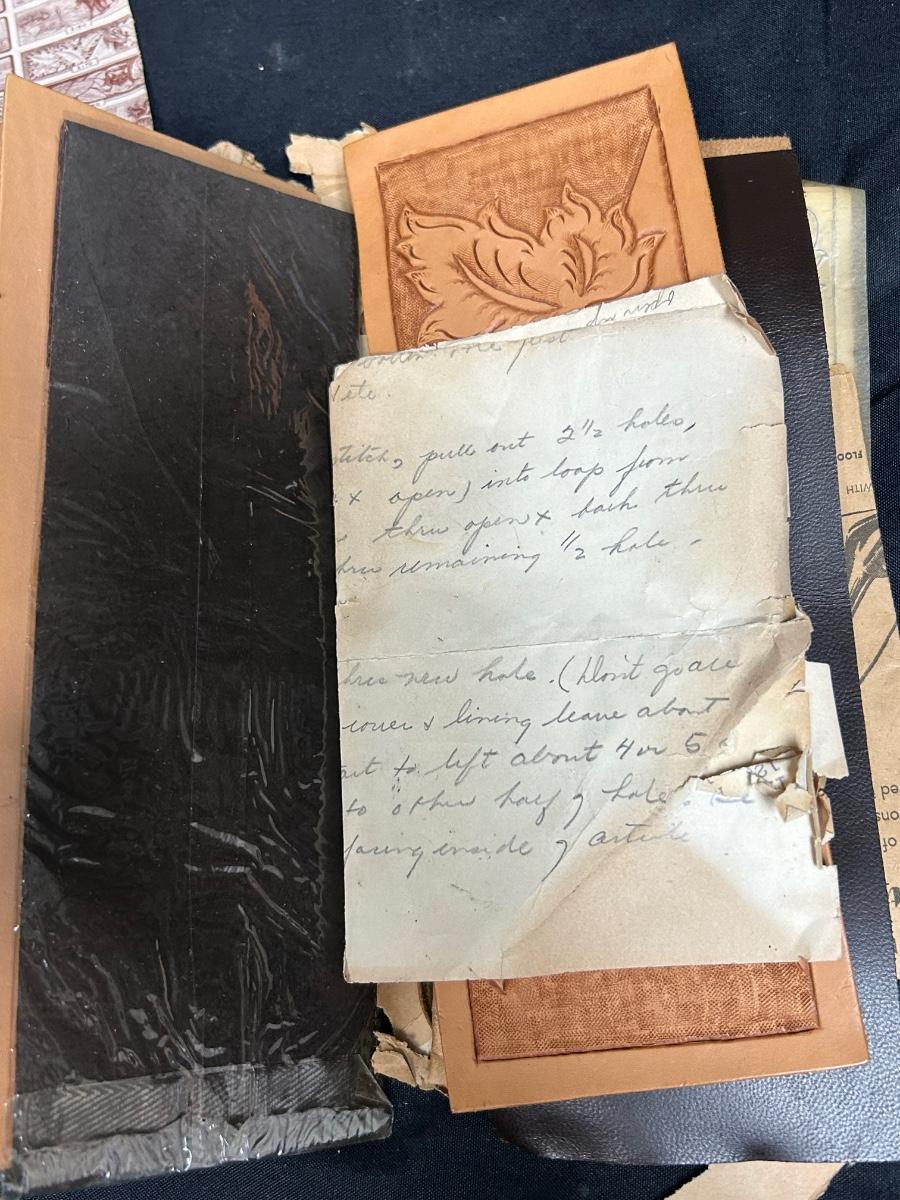 bottom one just
etc.
stitch, pull out 2 1/2 holes,
x open) into loop from
thru open x back thru
thru remaining 1/2 hole -
thru new hole. (Don't go all
cover & lining leave about
to left about 4 or 5
to other half of hole.
facing inside of article
FLOO
WITH
ed
ons
of